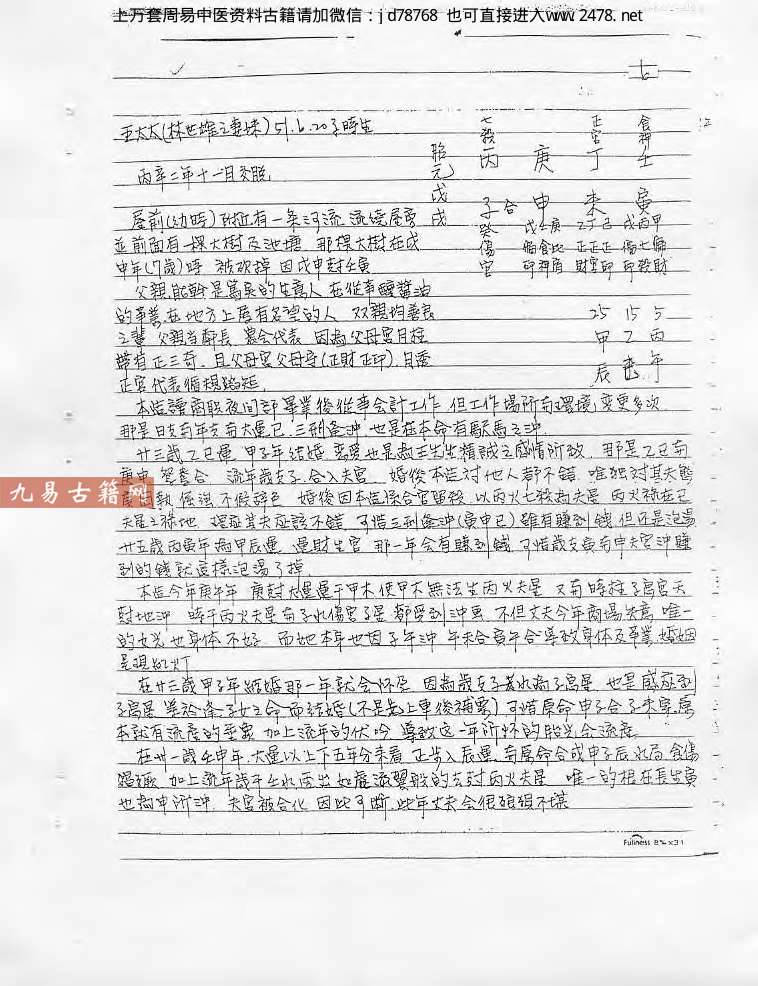 上万套周易中医资料古籍请加微信：jd78768 也可直接进入www.2478.net
七
王太太(林世雄之妻妹)51.6.20子時生
七殺 正官 食神
胎元 丙 庚 丁 壬
丙辛二年十一月交脫
戊戌 子合申 未 寅
屋前(幼時)附近有一条河流 流繞屋旁
癸 戊壬庚 乙丁己 戊丙甲
並前面有一棵大樹及池塘 那棵大樹在戊
傷官 偏食比 正正正 偏七偏
申年(7歲)時 被砍掉 因戊申封壬寅
印神肩 財官印 印殺財
父親能幹是篤矣的生意人 在從事釀醬油
的事業在地方上屬有名望的人 双親均善良
25 15 5
之輩 父親当鄰長 農会代表 因為父母宮目柱
甲 乙 丙
帶有正三奇 且父母宮父母守(正財正印) 月透
辰 巳 午
正官代表循規蹈矩
本造讀商職夜間部畢業後從事会計工作 但工作場所与環境 变更多次
那是日支与年支与大運巳 三刑逢沖 也是在本命有馬馬之沖
廿三歲乙巳運 甲子年結婚 恋愛也是救主先生精誠之感情所致 那是乙巳与
庚申 鴛鴦合 流年歲支子合入夫宮 婚後本造对他人都不錯 唯独对其夫態
度固執 倔強不假辞色 婚後因本造係合官留殺 以丙火七殺為夫星 丙火祿在巳
夫星之祿地 理應其夫应該不錯 可惜三刑逢沖(寅申巳)雖有賺到錢 但还是泡湯
廿五歲丙寅年為甲辰運 運財生官 那一年会有賺到錢 可惜歲支寅与申夫宮沖 賺
到的錢就這樣泡湯了掉
本造今年庚午年 庚封大運運干甲木 使甲木無法生丙火夫星 又与時柱子宮天
封地沖 時干丙火夫星与子水傷官子星 都受到沖剋 不但丈夫今年商場失意 唯一
的女兒也身体不好 而她本身也因子午沖 午未合寅午合 導致身体及事業、婚姻
呈現紅灯
在廿三歲甲子年結婚那一年就会怀孕 因為歲支子癸水為子宮星 也是感应到
子宮星 準於逢子女之命而結婚(不是先上車後補票) 可惜原命申子合子未害 原
本就有流產的重象 加上流年的伏吟 導致这一年所怀的胎兒会流產
在卅一歲壬申年 大運以上下五年分来看 正步入辰運 与原命合成申子辰水局 食傷
加上流年歲干壬水透出如 般的去封丙火夫星 唯一的根在長生寅
也為申所沖 夫宮被合化 因此可断 此年丈夫会很狼狽不堪
九易古籍网
Fullness